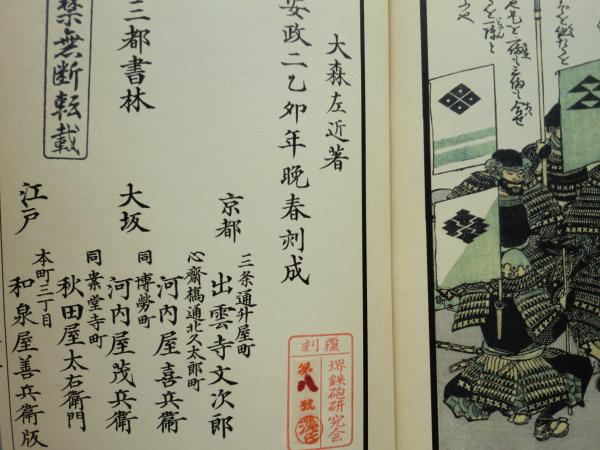 大森左近著
安政二乙卯年晩春刻成
三都書林
禁無断転載
京都
三条通升屋町
出雲寺文次郎
大坂
心斎橋通北久太郎町
河内屋喜兵衛
同博労町
河内屋茂兵衛
同安堂寺町
秋田屋太右衛門
江戸
本町三丁目
和泉屋善兵衛版
覆刻
堺鉄砲研究会
第八號